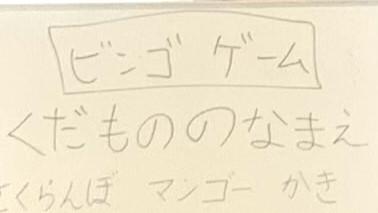 ビンゴ ゲーム
くだもののなまえ
さくらんぼ マンゴー かき